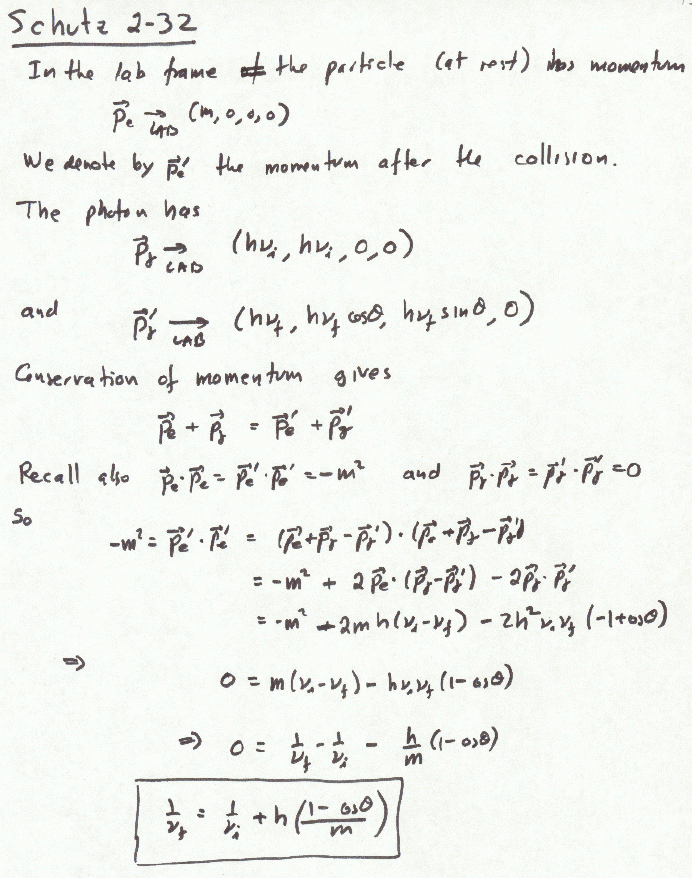 Schutz 2-32
In the lab frame the particle (at rest) has momentum
p⃗e →LAB (m,0,0,0)
We denote by p⃗e′ the momentum after the collision.
The photon has
p⃗γ →LAB (hνi, hνi, 0, 0)
and p⃗γ′ →LAB (hνf, hνf cosθ, hνf sinθ, 0)
Conservation of momentum gives
p⃗e + p⃗γ = p⃗e′ + p⃗γ′
Recall also p⃗e·p⃗e = p⃗e′·p⃗e′ = -m² and p⃗γ·p⃗γ = p⃗γ′·p⃗γ′ = 0
So
-m² = p⃗e′·p⃗e′ = (p⃗e+p⃗γ-p⃗γ′)·(p⃗e+p⃗γ-p⃗γ′)
= -m² + 2p⃗e·(p⃗γ-p⃗γ′) - 2p⃗γ·p⃗γ′
= -m² - 2mh(νi-νf) - 2h²νiνf(-1+cosθ)
⇒ 0 = m(νi-νf) - hνiνf(1-cosθ)
⇒ 0 = 1/νf - 1/νi - h/m (1-cosθ)
1/νf = 1/νi + h((1-cosθ)/m)